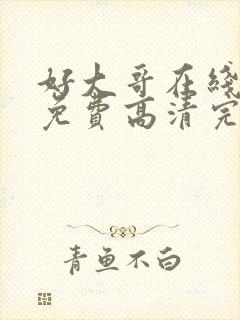 好大哥在线
免费高清完
青鱼不白